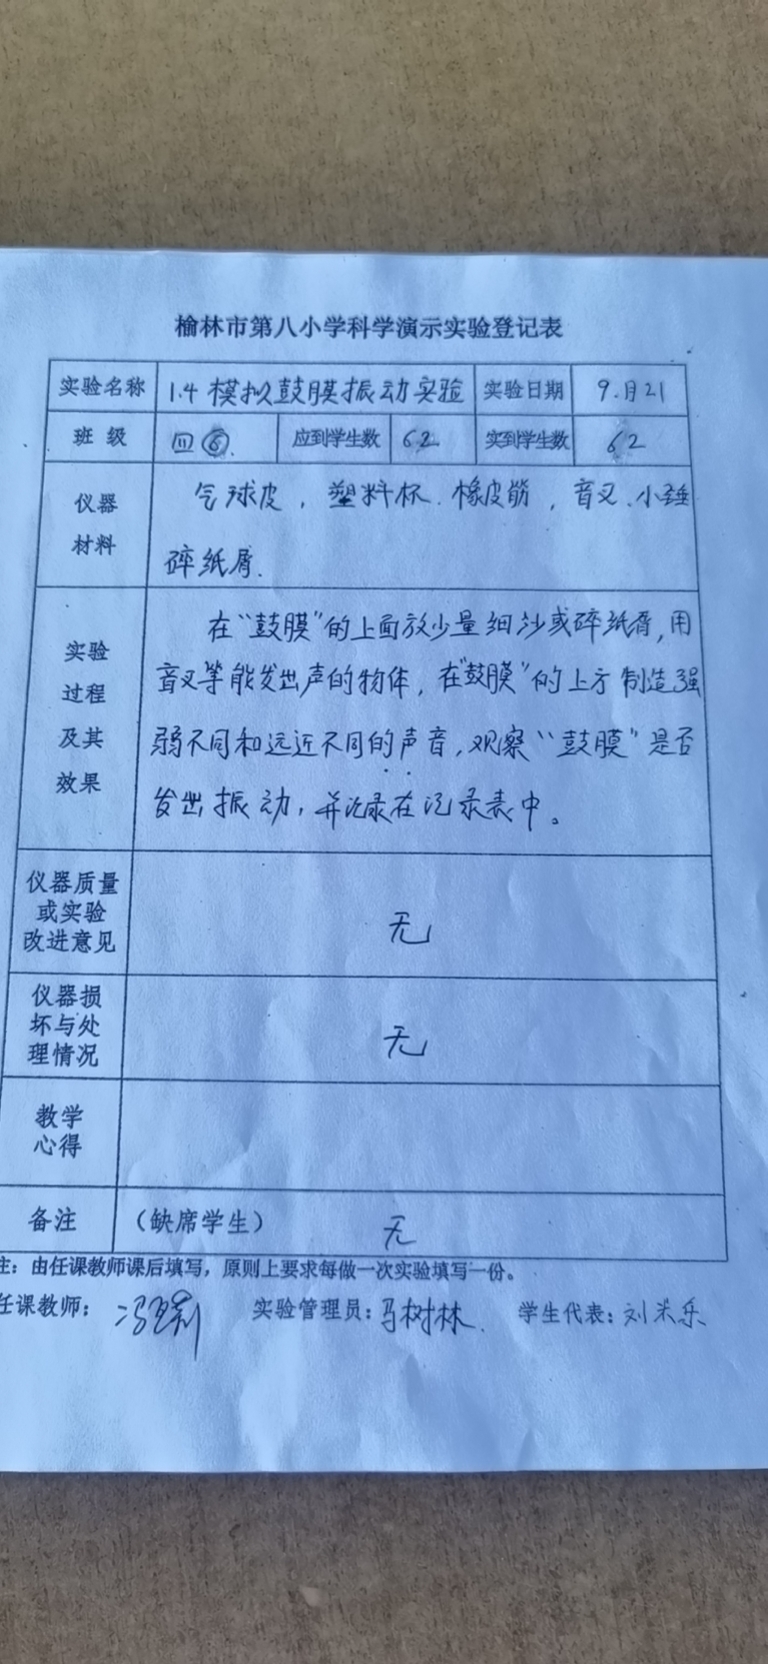 榆林市第八小学科学演示实验登记表
实验名称 1.4 模拟鼓膜振动实验 实验日期 9.月21
班 级 四⑥. 应到学生数 62 实到学生数 62
仪器
材料
气球皮，塑料杯.橡皮筋，音叉.小锤
碎纸屑.
实验
过程
及其
效果
在“鼓膜”的上面放少量细沙或碎纸屑,用
音叉等能发出声的物体，在“鼓膜”的上方制造强
弱不同和远近不同的声音,观察“鼓膜”是否
发出振动，并记录在记录表中。
仪器质量
或实验
改进意见
无
仪器损
坏与处
理情况
无
教学
心得
备注 （缺席学生） 无
注：由任课教师课后填写，原则上要求每做一次实验填写一份。
任课教师： 实验管理员：马树林. 学生代表：刘米乐